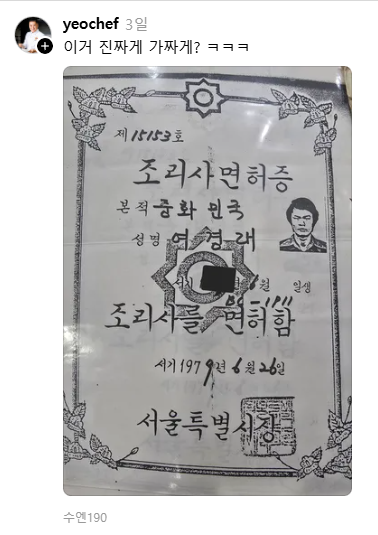 yeochef 3일
이거 진짜게 가짜게? ㅋㅋㅋ
제 15153호
조리사면허증
본적 중화 민국
성명 여경래
서기 6월 일생
조리사를 면허함
서기 1979년 6월 26일
서울특별시장
수엔190